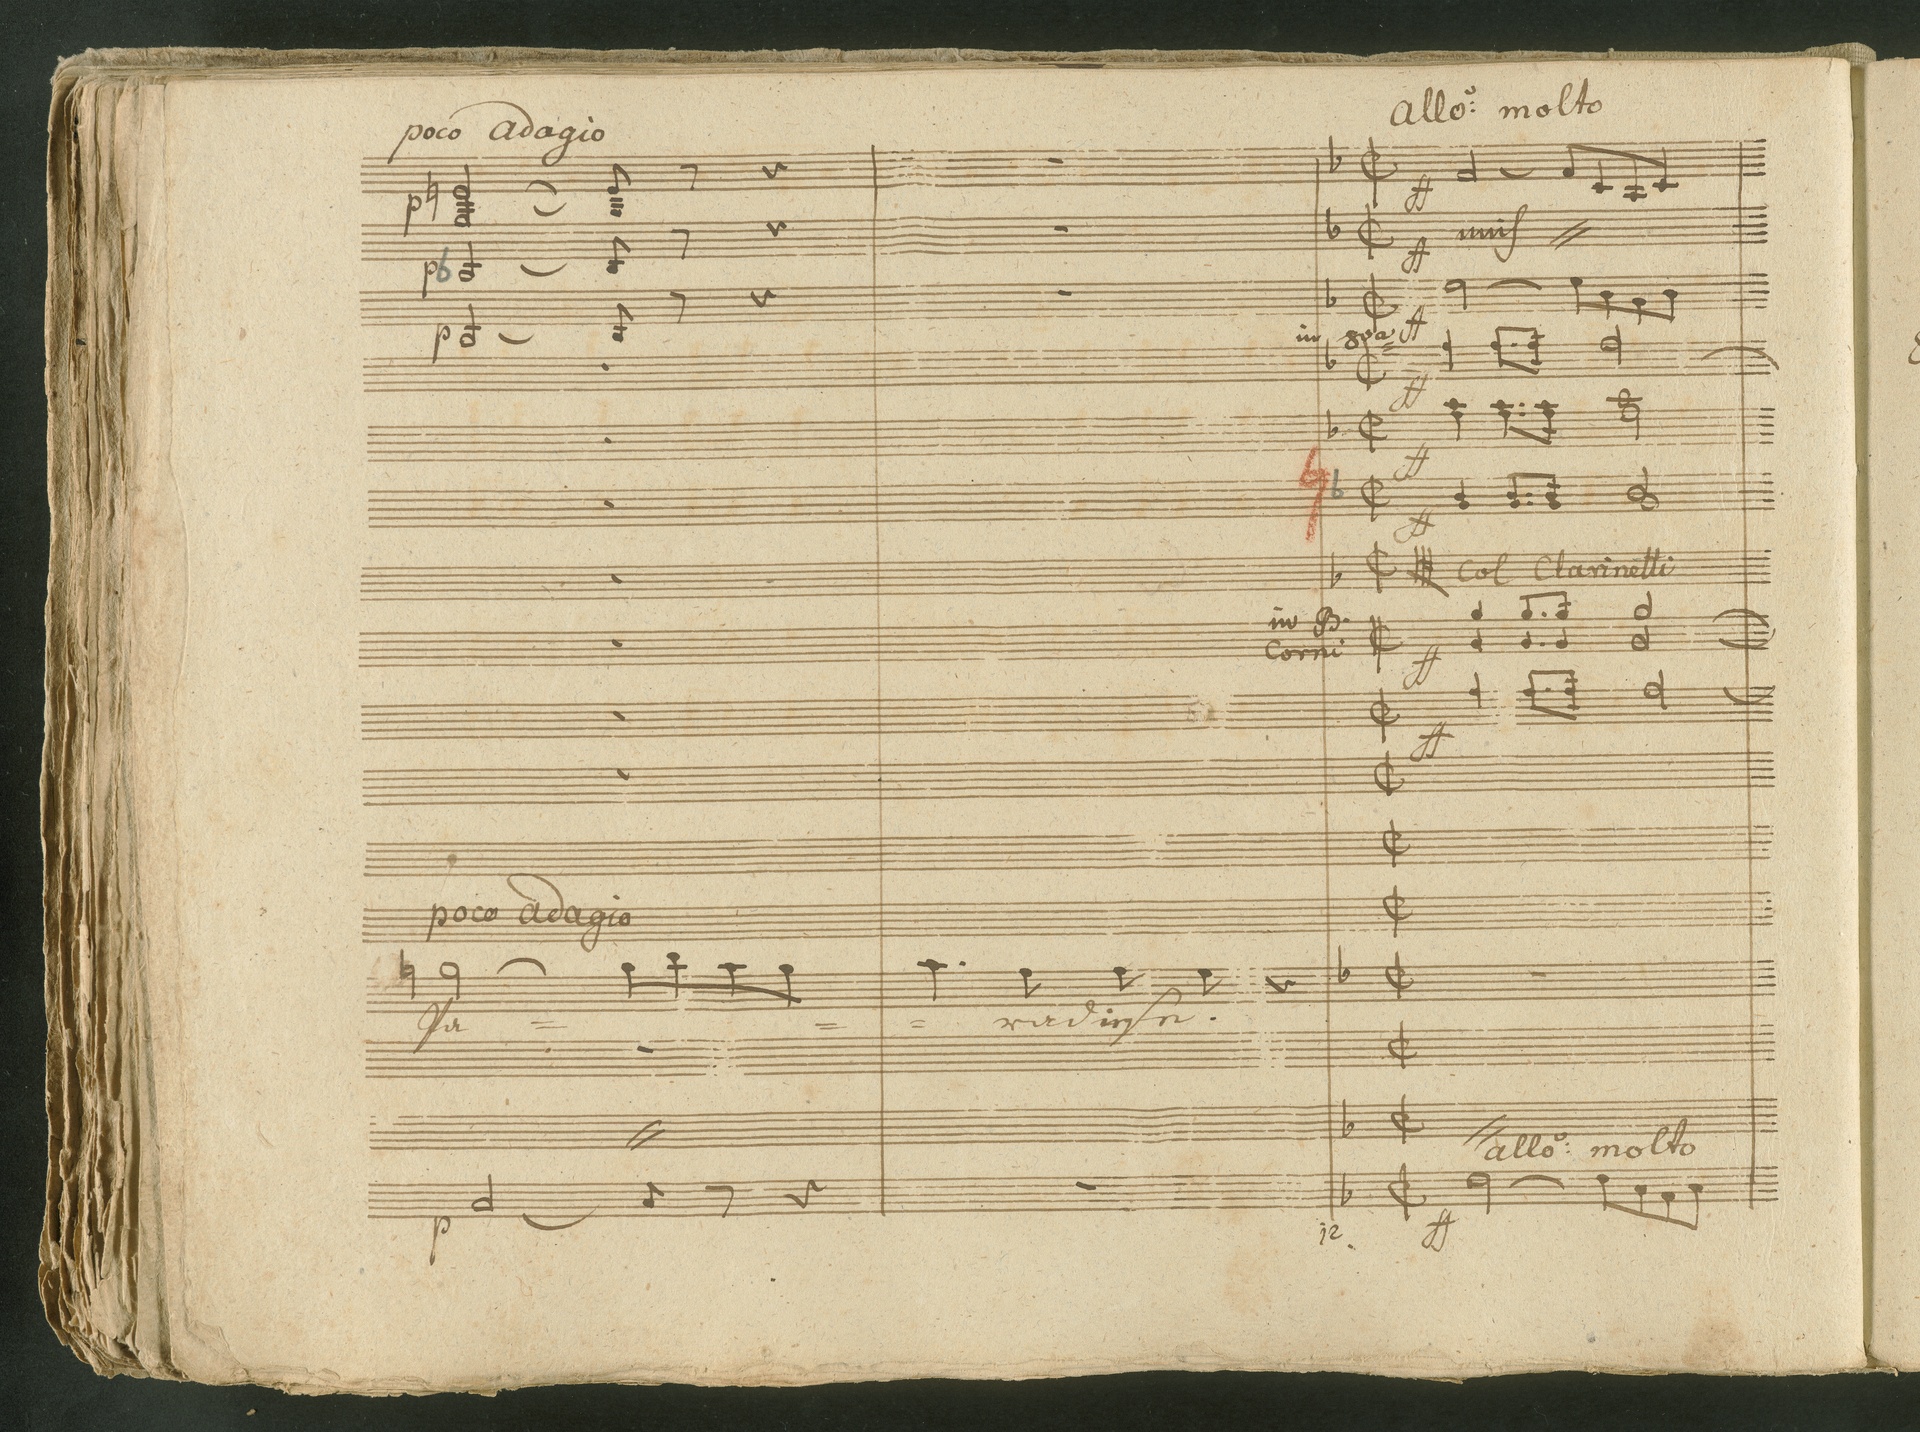 poco adagio
allo: molto
p
ff
p
ff
unis
p
ff
in 8va
ff
ff
ff
Col Clarinetti
in B.
Corni
ff
ff
poco adagio
Pa = = = radiese.
allo: molto
p
ff
12.